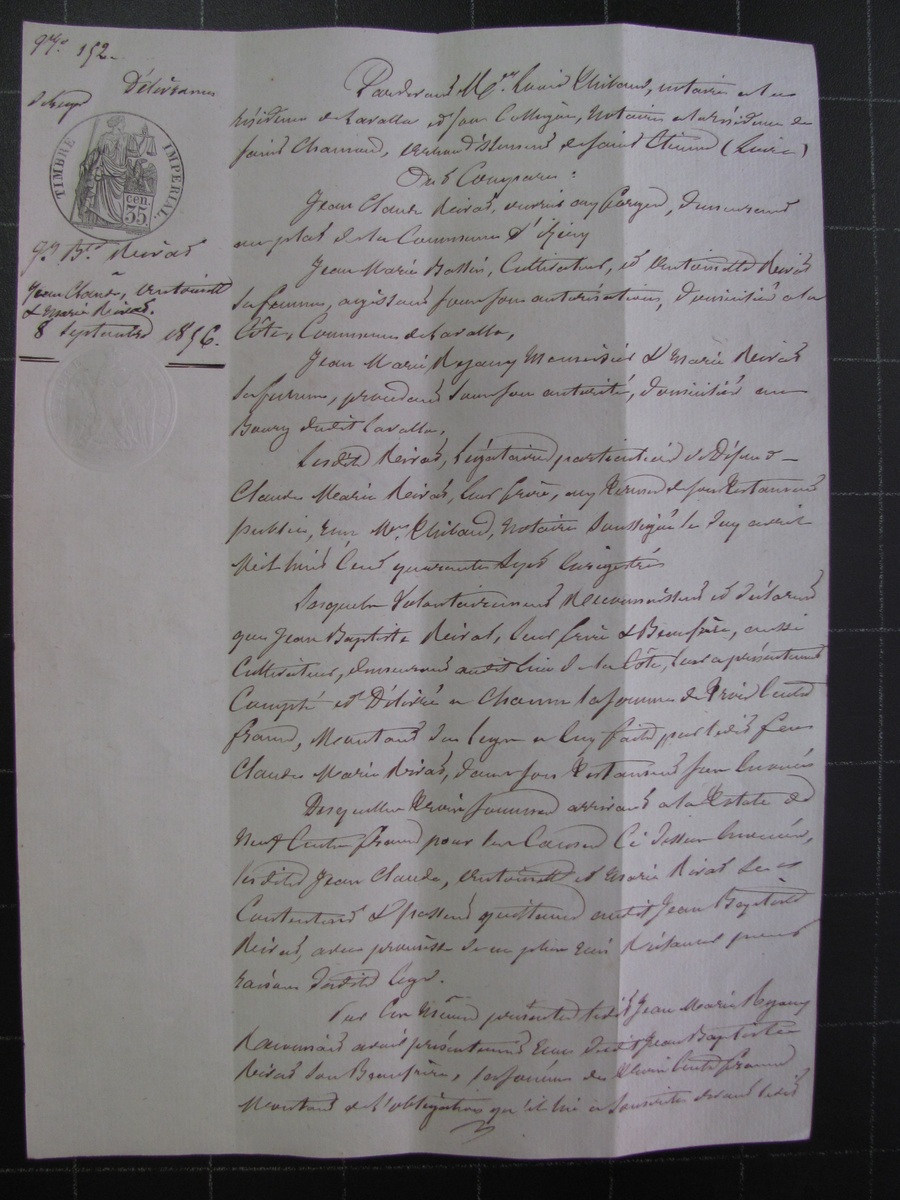 152.
Délivrance
de legs
TIMBRE IMPERIAL
cen. 35
Reivat
Jean Claude, Antoinette
& Marie Reivat.
8 Septembre 1856.
Pardevant Me Louis Thibaud, notaire à la
résidence de Lavalla et son Collègue, Notaire à la résidence de
Saint Chamond, arrondissement de Saint Etienne (Loire)
Ont Comparu :
Jean Claude Reivat, ouvrier aux forges, demeurant
au plat de la Commune d'Izieux
Jean Marie Bassin, Cultivateur, et Antoinette Reivat
sa femme, agissant sous son autorisation, domiciliés à la
Côte, Commune de Lavalla,
Jean Marie Menuisier & Marie Reivat
sa femme, procédant sous son autorité, domiciliés au
Bourg dudit Lavalla,
Lesdits Reivat, légataires particuliers de Défunt
Claude Marie Reivat, leur frère, aux termes de son testament
public, reçu Me Thibaud, Notaire soussigné le dix avril
Mil huit Cent quarante Enregistré
Lesquels Volontairement Reconnaissent et déclarent
que Jean Baptiste Reivat, leur frère & Beaufrère, aussi
Cultivateur, demeurant audit lieu de la Côte, leur a présentement
Compté et Délivré à Chacun la somme de Trois Cents
francs, Montant du legs à eux fait par ledit feu
Claude Marie Reivat, dans son Testament sus énoncé
Desquelles Trois sommes arrivant à la Totale de
Neuf Cents francs pour les Causes Ci dessus énoncées,
lesdits Jean Claude, Antoinette et Marie Reivat se
Contentent & passent quittance audit Jean Baptiste
Reivat, avec promesse de ne plus rien Réclamer pour
raison desdits legs.
Par Ces Mêmes présentes ledit Jean Marie
Reconnaît avoir présentement Reçu dudit Jean Baptiste
Reivat son Beaufrère, la somme de Cents francs
Montant de l'obligation qu'il lui a Souscrite devant ledit